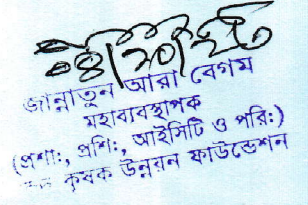 ০৪/১০/২৩
জান্নাতুন আরা বেগম
মহাব্যবস্থাপক
(প্রশাঃ, প্রশিঃ, আইসিটি ও পরিঃ)
কৃষক উন্নয়ন ফাউন্ডেশন